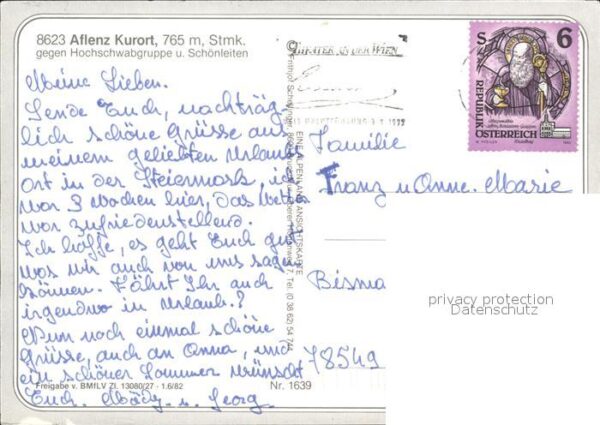 8623 Aflenz Kurort, 765 m, Stmk.
gegen Hochschwabgruppe u. Schönleiten
Meine Lieben.
Sende Euch, nachträg-
lich schöne Grüsse aus
meinem geliebten Urlaubs
ort in der Steiermark,
vor 3 Wochen hier, das Wetter
war zufriedenstellend.
Ich hoffe, es geht Euch gut
was wir auch von uns sagen
können. Fährt Ihr auch
irgendwo in Urlaub?
Nun noch einmal schöne
Grüsse, auch an Anna, und
ein schöner Sommer wünscht
Euch. Mädy u. Georg.
Freigabe v. BMfLV Zl. 13080/27 - 1.6/82
Nr. 1639
EINE ALPENLAND ANSICHTSKARTE
Tel. (0 38 62) 54 744
THEATER AN DER WIEN
S 6
REPUBLIK
ÖSTERREICH
Familie
Franz u Anne. Marie
Bisma
78549
privacy protection
Datenschutz